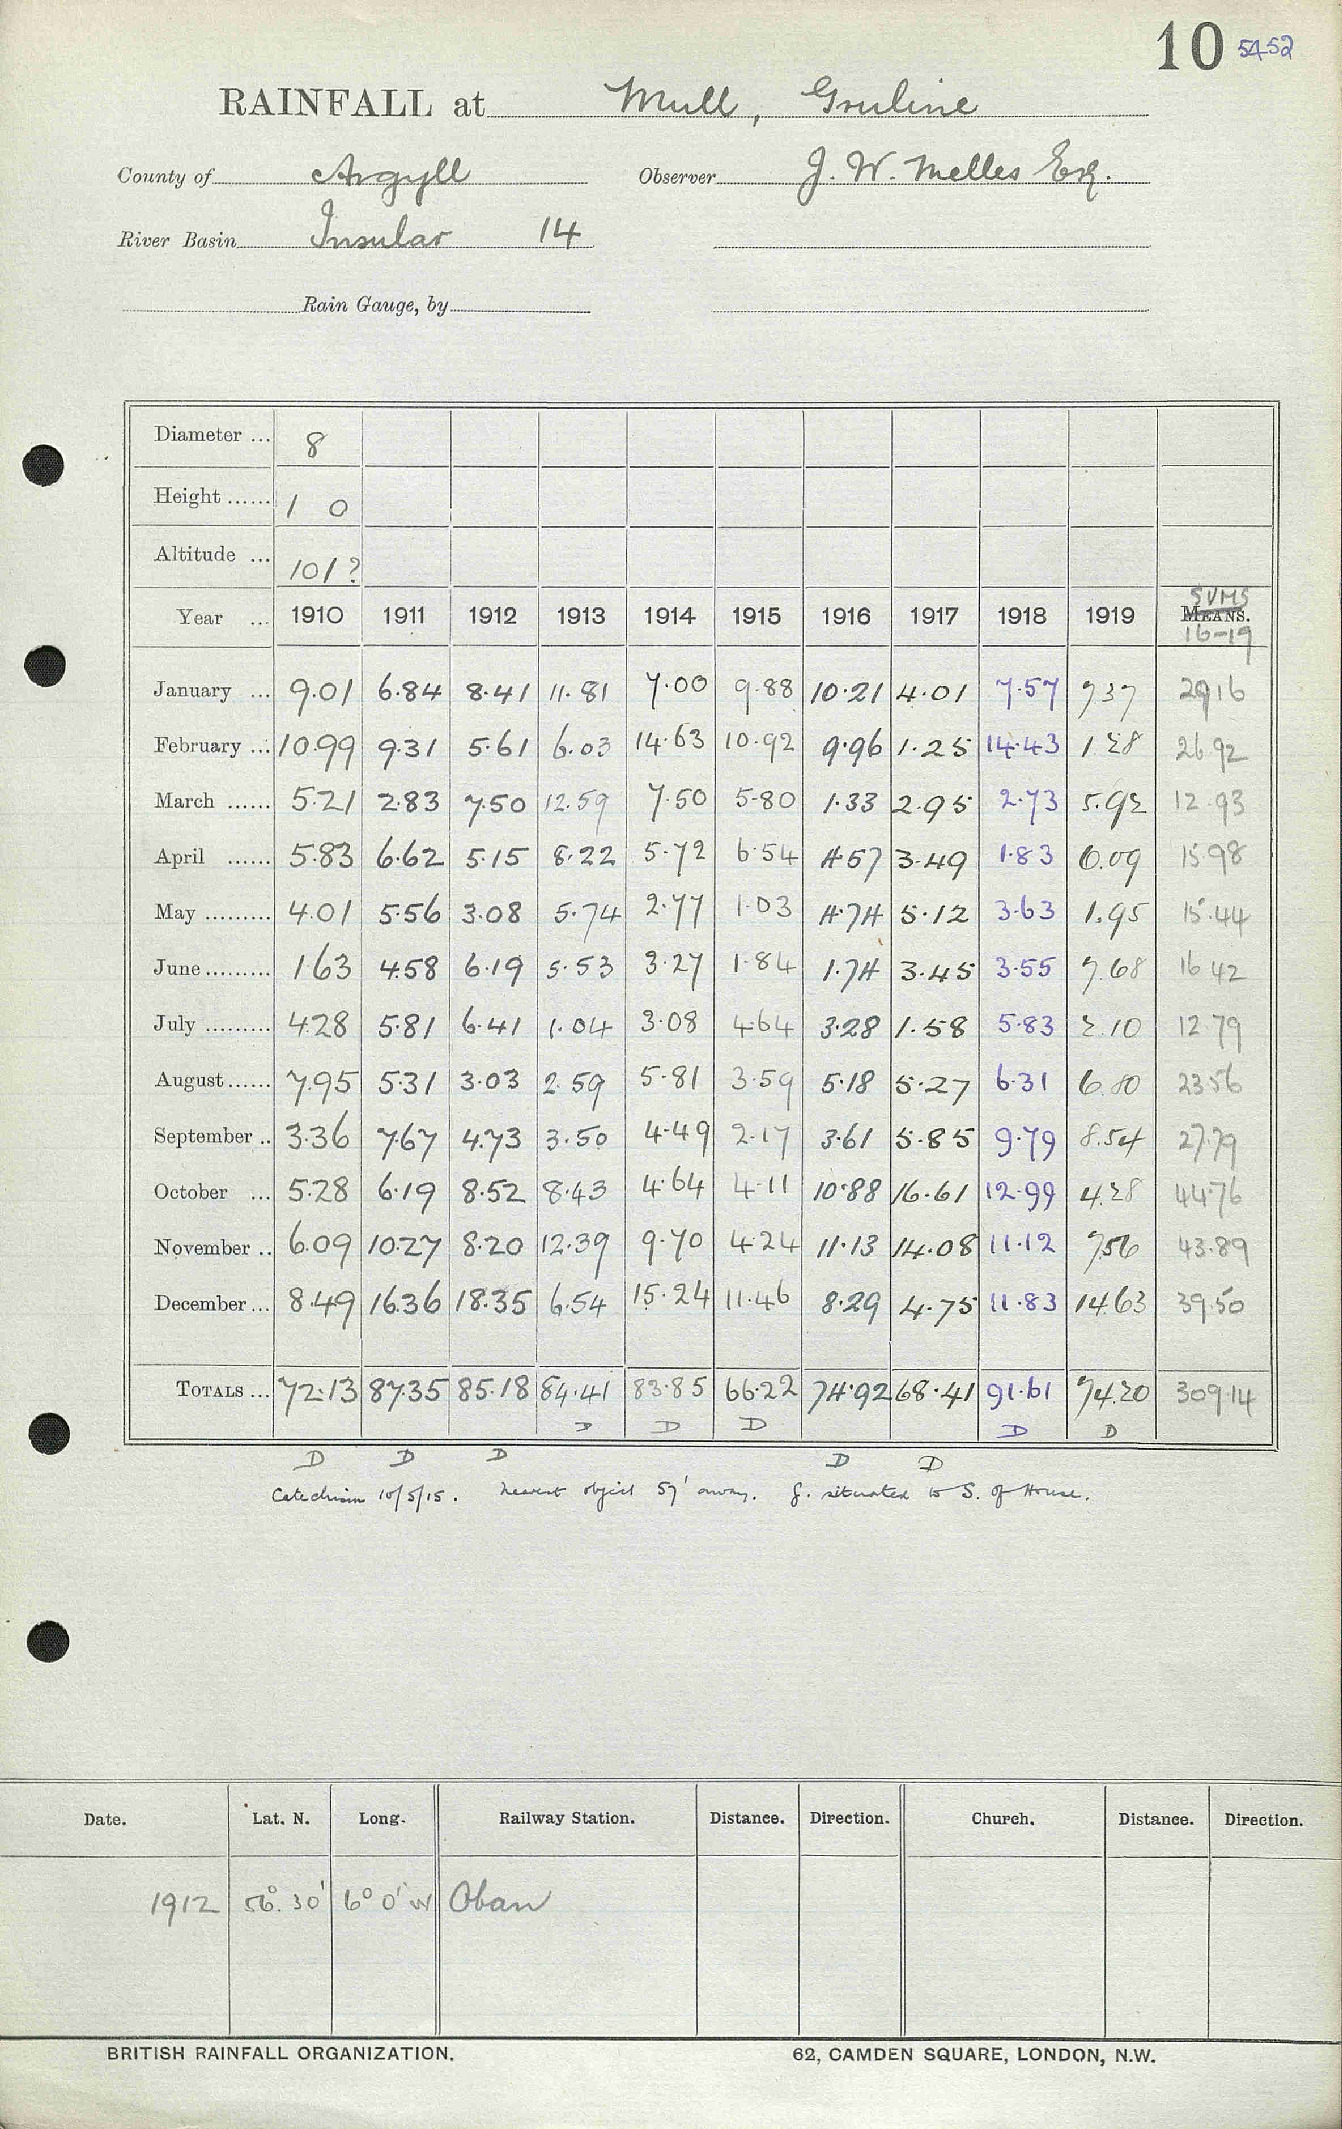 10 5452
RAINFALL at Mull, Gruline
County of Argyll Observer J. W. Melles Esq.
River Basin Insular 14
Rain Gauge, by
Diameter ... 8
Height ...... 1 0
Altitude ... 101?
Year ... 1910 1911 1912 1913 1914 1915 1916 1917 1918 1919 SUMS MEANS. 16-19
January ... 9.01 6.84 8.41 11.81 7.00 9.88 10.21 4.01 7.57 7 37 29 16
February ... 10.99 9.31 5.61 6.03 14.63 10.92 9.96 1.25 14.43 1.28 26.92
March ...... 5.21 2.83 7.50 12.59 7.50 5.80 1.33 2.95 2.73 5.92 12.93
April ...... 5.83 6.62 5.15 8.22 5.72 6.54 4.57 3.49 1.83 6.09 15.98
May ......... 4.01 5.56 3.08 5.74 2.77 1.03 4.74 5.12 3.63 1.95 15.44
June ......... 1 63 4.58 6.19 5.53 3.27 1.84 1.74 3.45 3.55 7.68 16 42
July ......... 4.28 5.81 6.41 1.04 3.08 4.64 3.28 1.58 5.83 2.10 12.79
August ...... 7.95 5.31 3.03 2.59 5.81 3.59 5.18 5.27 6.31 6.80 23.56
September .. 3.36 7.67 4.73 3.50 4.49 2.17 3.61 5.85 9.79 8.54 27.79
October ... 5.28 6.19 8.52 8.43 4.64 4.11 10.88 16.61 12.99 4.28 44.76
November .. 6.09 10.27 8.20 12.39 9.70 4.24 11.13 14.08 11.12 7.56 43.89
December ... 8.49 16.36 18.35 6.54 15.24 11.46 8.29 4.75 11.83 14.63 39.50
TOTALS ... 72.13 87.35 85.18 84.41 83.85 66.22 74.92 68.41 91.61 74.20 309.14
D D D D D
D D D D D
Catechism 10/5/15. Nearest object 57' away. G. situated to S. of House.
Date. Lat. N. Long. Railway Station. Distance. Direction. Church. Distance. Direction.
1912 56° 30' 6° 0' W Oban
BRITISH RAINFALL ORGANIZATION. 62, CAMDEN SQUARE, LONDON, N.W.